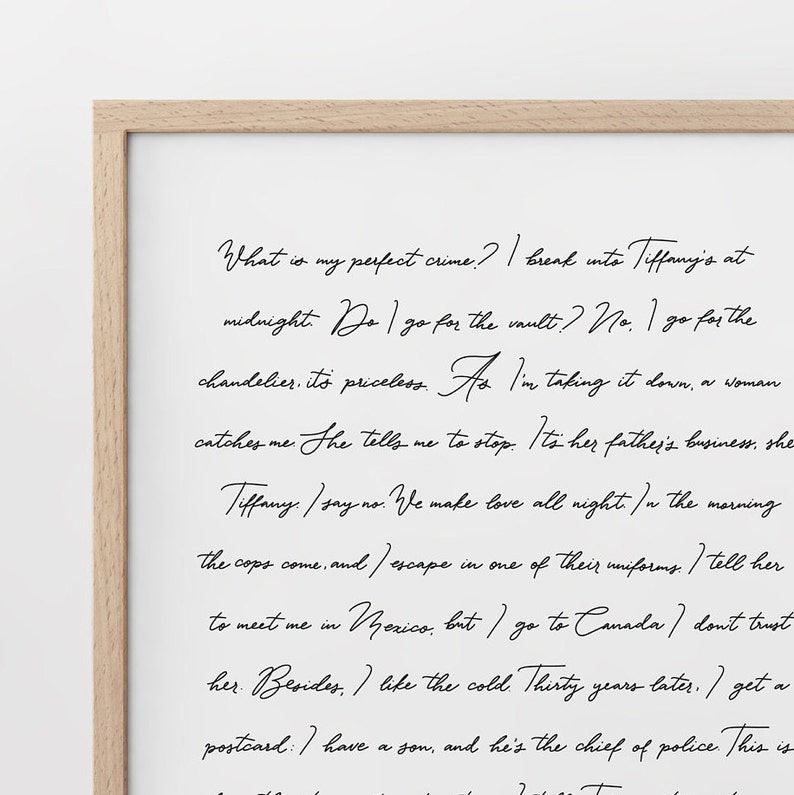 What is my perfect crime? I break into Tiffany's at
midnight. Do I go for the vault? No, I go for the
chandelier, it's priceless. As I'm taking it down, a woman
catches me. She tells me to stop. It's her father's business, she
Tiffany. I say no. We make love all night. In the morning
the cops come, and I escape in one of their uniforms. I tell her
to meet me in Mexico, but I go to Canada I don't trust
her. Besides, I like the cold. Thirty years later, I get a
postcard: I have a son, and he's the chief of police. This is